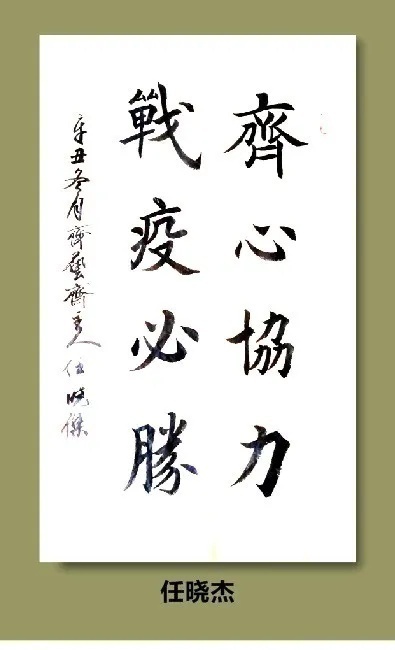 齊心協力
戰疫必勝
辛丑冬月齊藝齋主人任曉傑
任晓杰